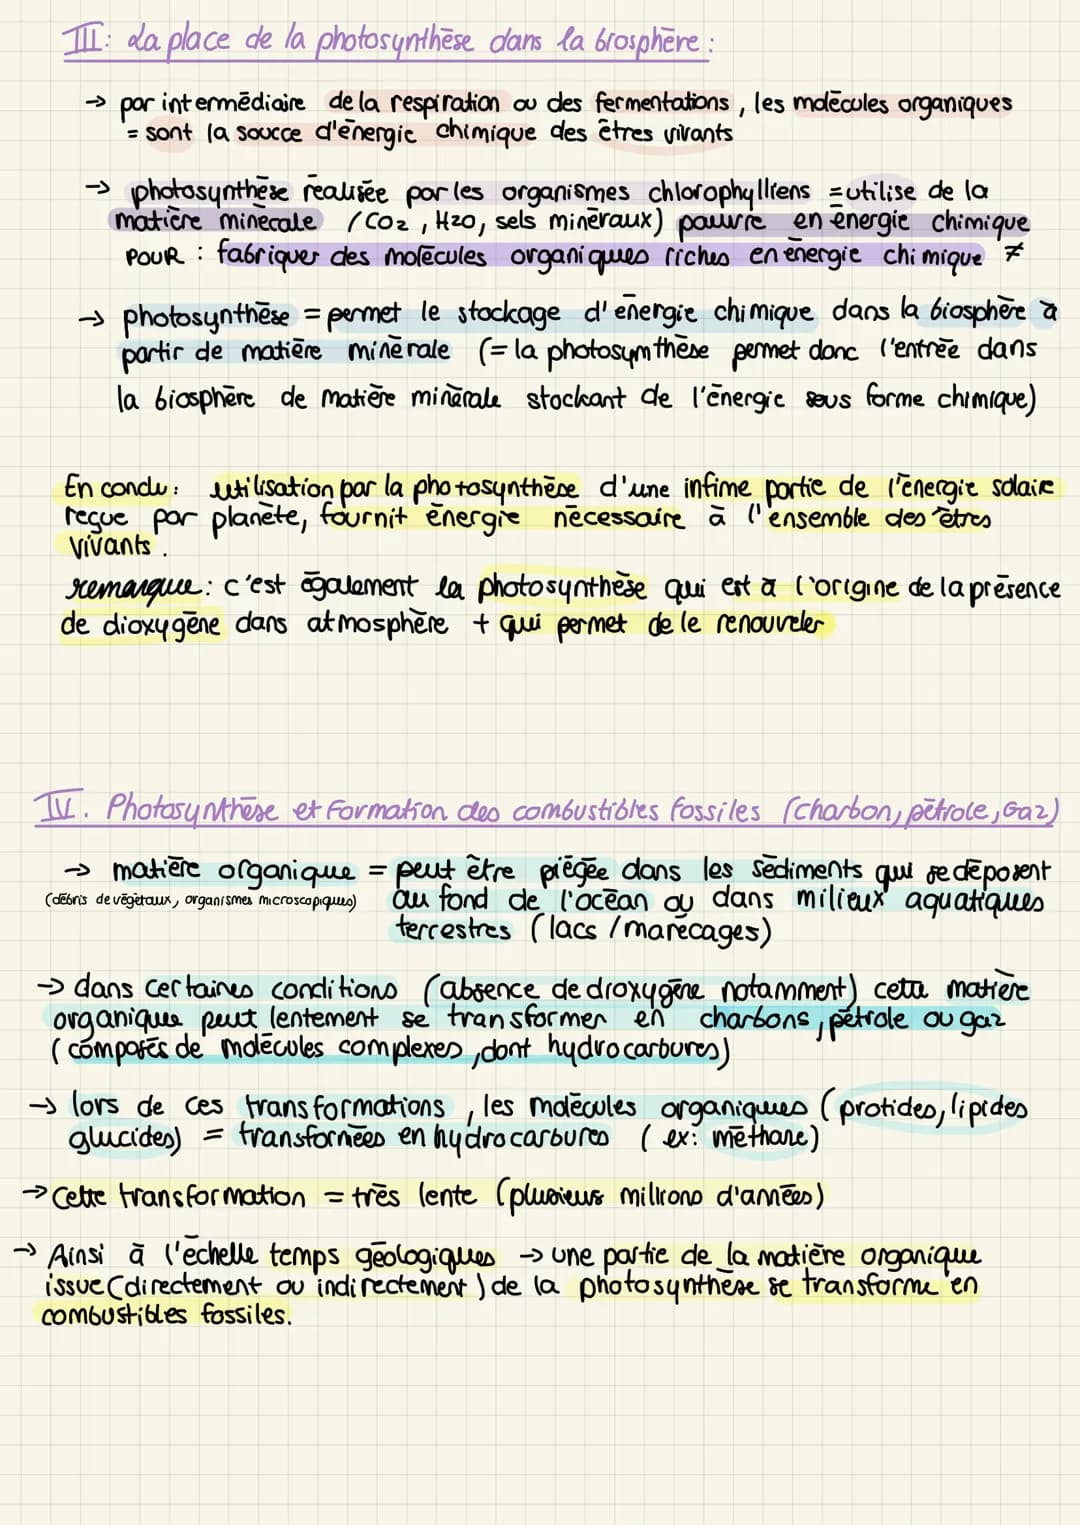 III: La place de la photosynthèse dans la biosphère :
→ par intermédiaire de la respiration ou des fermentations, les molécules organiques
= sont la source d'énergie chimique des êtres vivants
→ photosynthèse réalisée par les organismes chlorophylliens = utilise de la
matière minérale (CO2, H2O, sels minéraux) pauvre en énergie chimique
POUR : fabriquer des molécules organiques riches en énergie chimique ≠
→ photosynthèse = permet le stockage d'énergie chimique dans la biosphère à
partir de matière minérale (= la photosynthèse permet donc l'entrée dans
la biosphère de matière minérale stockant de l'énergie sous forme chimique)
En conclu : utilisation par la photosynthèse d'une infime partie de l'énergie solaire
reçue par planète, fournit énergie nécessaire à l'ensemble des êtres
vivants.
remarque : c'est également la photosynthèse qui est à l'origine de la présence
de dioxygène dans atmosphère + qui permet de le renouveler
IV. Photosynthèse et Formation des combustibles fossiles (charbon, pétrole, Gaz)
→ matière organique = peut être piégée dans les sédiments qui se déposent
(débris de végétaux, organismes microscopiques) au fond de l'océan ou dans milieux aquatiques
terrestres (lacs / marécages)
→ dans certaines conditions (absence de dioxygène notamment) cette matière
organique peut lentement se transformer en charbons, pétrole ou gaz
(composés de molécules complexes, dont hydrocarbures)
→ lors de ces transformations, les molécules organiques (protides, lipides
glucides) = transformées en hydrocarbures (ex: méthane)
→ Cette transformation = très lente (plusieurs millions d'années)
→ Ainsi à l'échelle temps géologiques → une partie de la matière organique
issue (directement ou indirectement) de la photosynthèse se transforme en
combustibles fossiles.